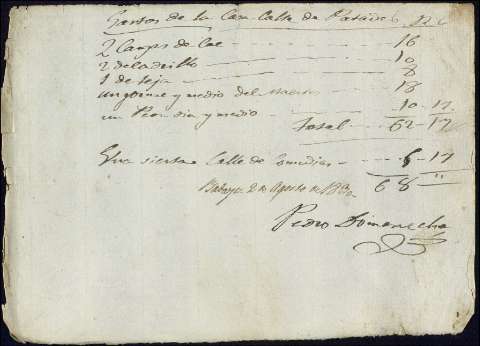 Gastos de la Casa Calle de
2 Cargas de Cal - - - 16
2 de ladrillo - - - 10
1 de teja - - - 8
un jornal y medio del Maestro - - 18
un Peon dia y medio - - - 10 - 17
Total - - - 62 - 17
Calle de - - 5 - 17
2 de Agosto de 68 - "
Pedro Domenecha